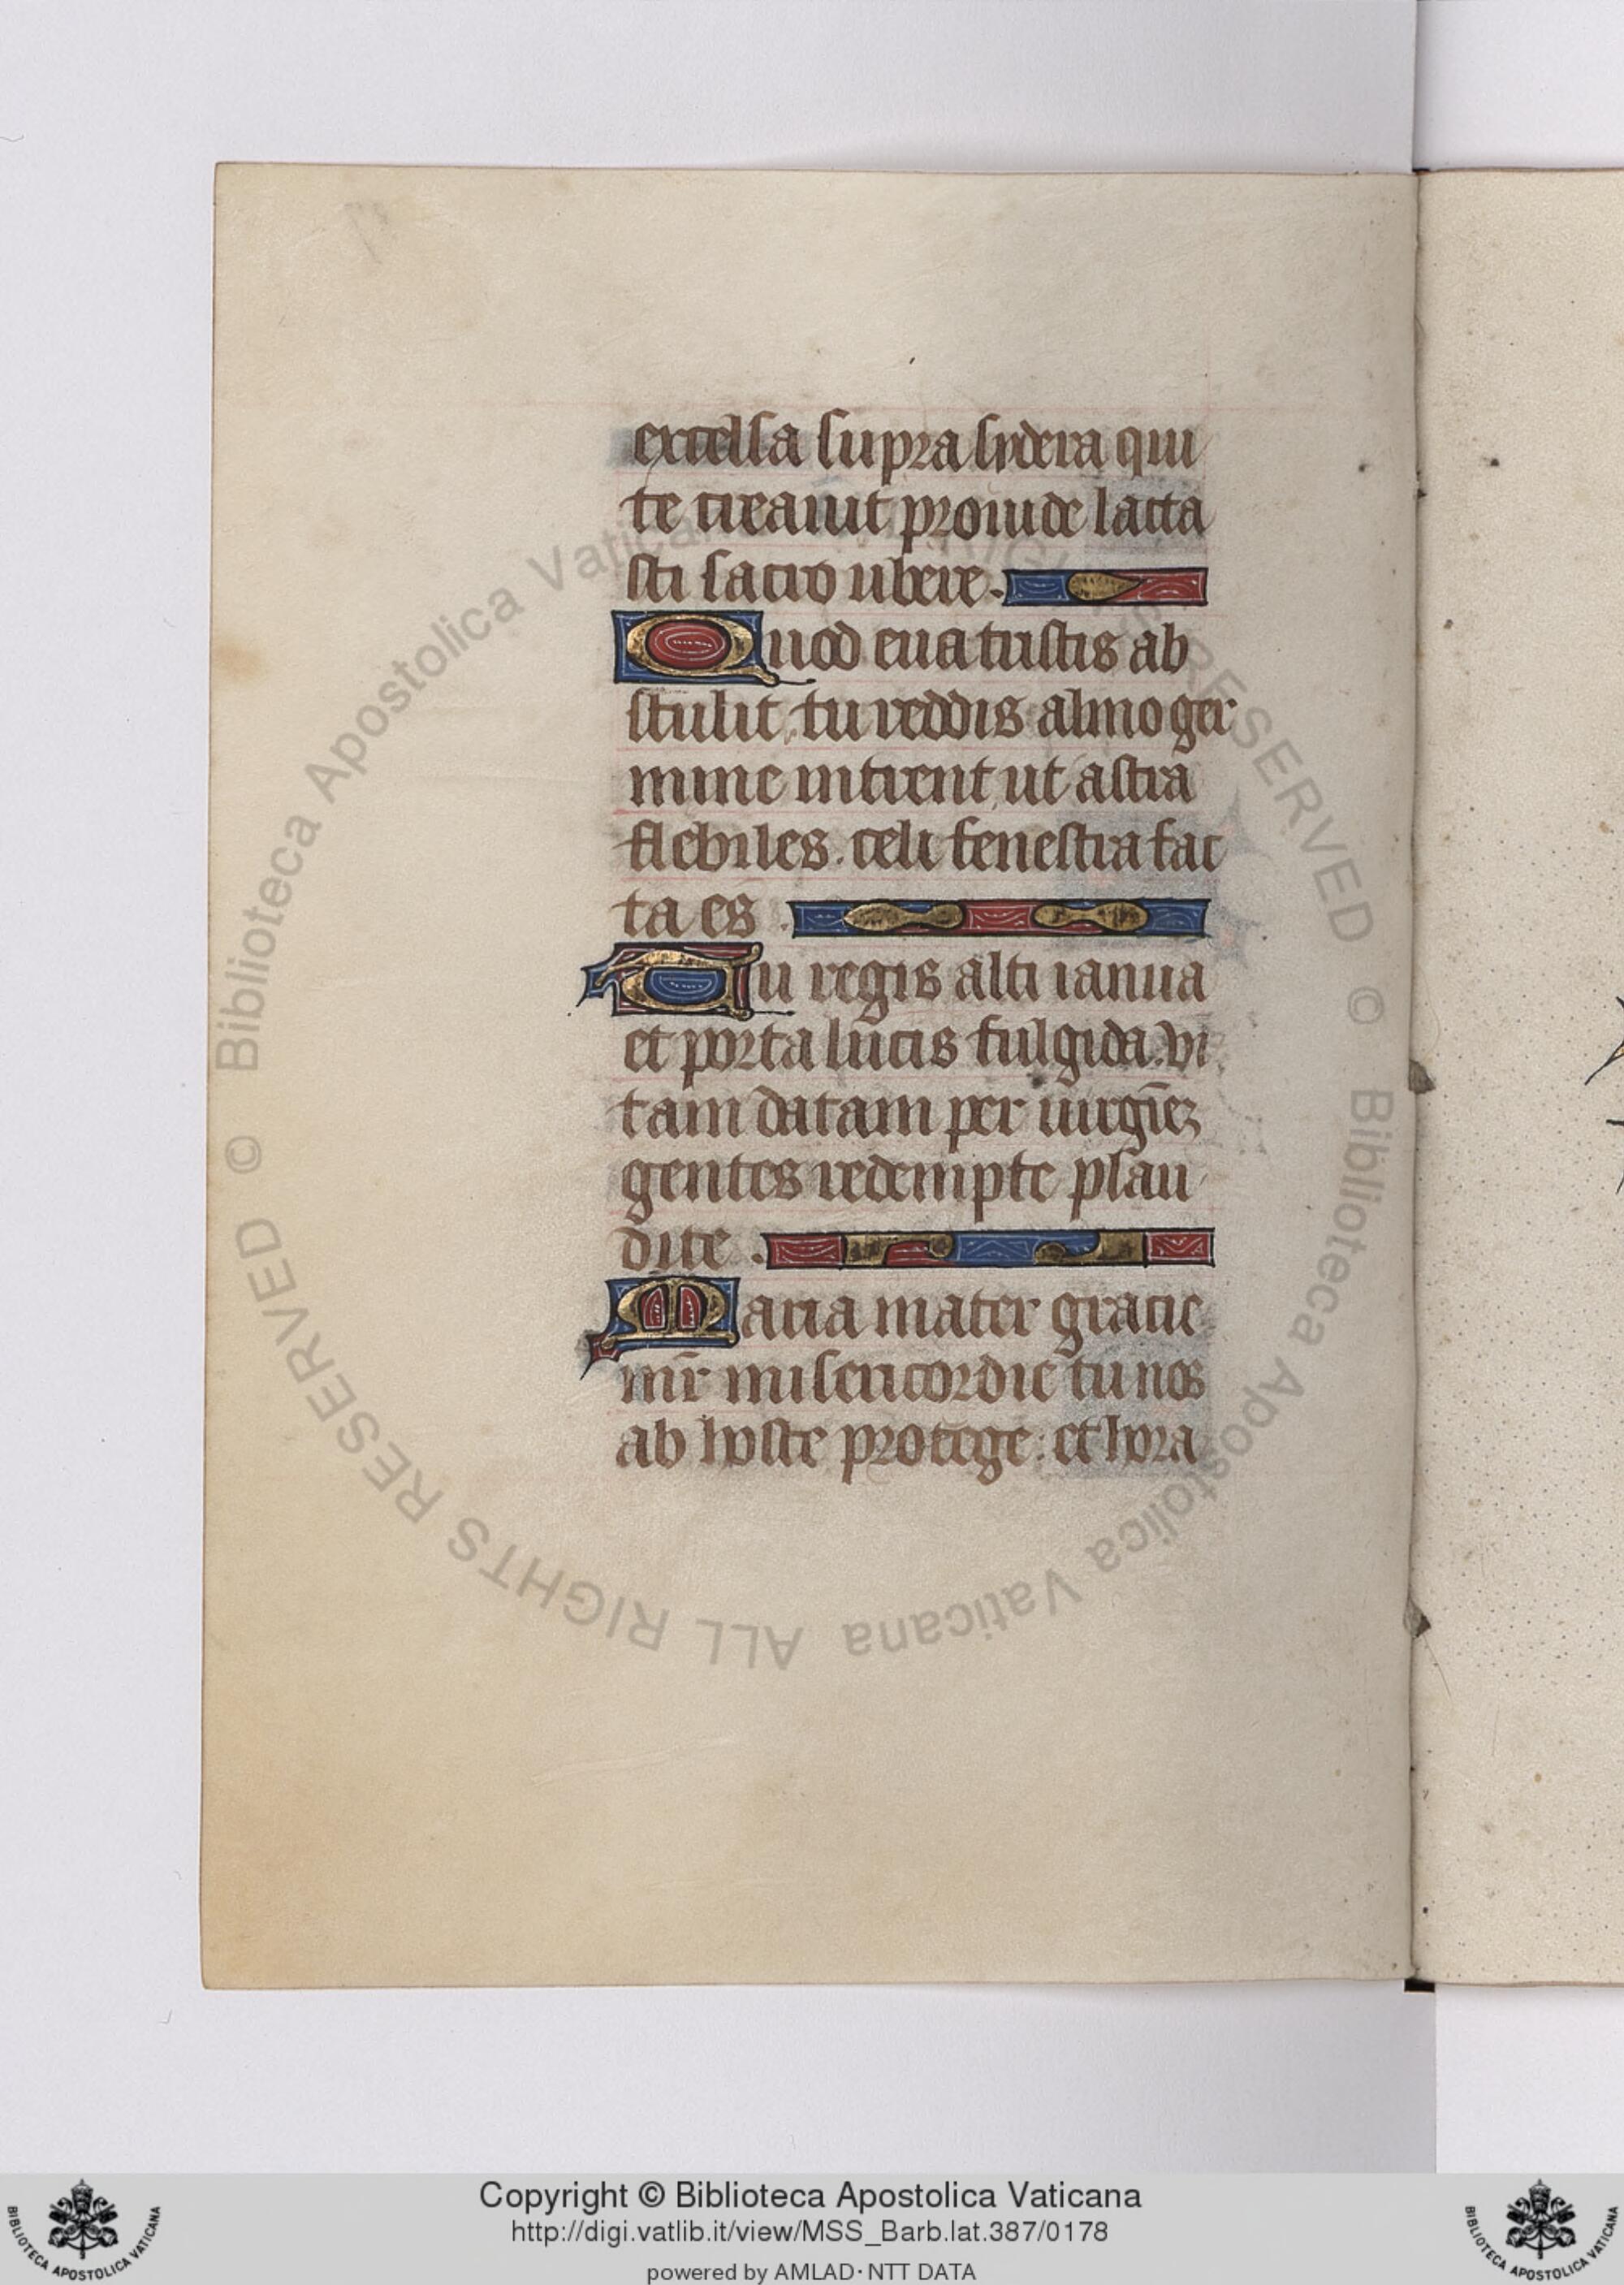 excelsa supra sydera qui
te creauit prouide lacta
sti sacro ubere.
Quod eua tristis ab
stulit, tu reddis almo ger
mine intrent ut astra
flebiles. celi fenestra fac
ta es.
Tu regis alti ianua
et porta lucis fulgida. vi
tam datam per uirgīeꝫ
gentes redempte plau
dite.
Maria mater gracie
mr̄ misericordie tu nos
ab hoste protege: et hora
© Biblioteca Apostolica Vaticana ALL RIGHTS RESERVED © Biblioteca Apostolica Vaticana ALL RIGHTS RESERVED
Copyright © Biblioteca Apostolica Vaticana
http://digi.vatlib.it/view/MSS_Barb.lat.387/0178
powered by AMLAD·NTT DATA
BIBLIOTECA APOSTOLICA VATICANA
BIBLIOTECA APOSTOLICA VATICANA